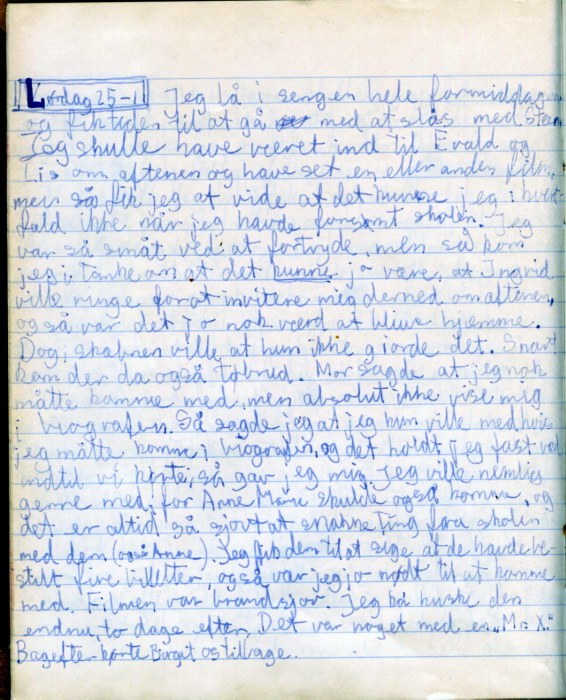 Lørdag 25-1 Jeg lå i sengen hele formiddagen
og fik tiden til at gå med at slås med Sten
Jeg skulle have været ind til Evald og
Lis om aftenen og have set en eller anden film,
men så fik jeg at vide at det kunne jeg i hvert
fald ikke når jeg havde forsømt skolen. Jeg
var så småt ved at fortryde, men så kom
jeg i tanke om at det kunne jo være, at Ingrid
ville ringe for at invitere mig derned om aftenen,
og så var det jo nok værd at blive hjemme.
Dog, skæbnen ville, at hun ikke gjorde det. Snart
kom der da også tilbud. Mor sagde at jeg nok
måtte komme med, men absolut ikke vise mig
i biografen. Så sagde jeg at jeg kun ville med hvis
jeg måtte komme i biografen, og det holdt jeg fast ved
indtil vi kørte, så gav jeg mig. Jeg ville nemlig
gerne med, for Anne Marie skulde også komme, og
det er altid så sjovt at snakke Ting fra skolen
med dem (også Anne). Jeg fik dem til at sige at de havde be-
stilt fire billetter, og så var jeg jo nødt til at komme
med. Filmen var brandsjov. Jeg kan huske den
endnu, to dage efter. Det var noget med en "Mr. X."
Bagefter kørte Birgit os tilbage.